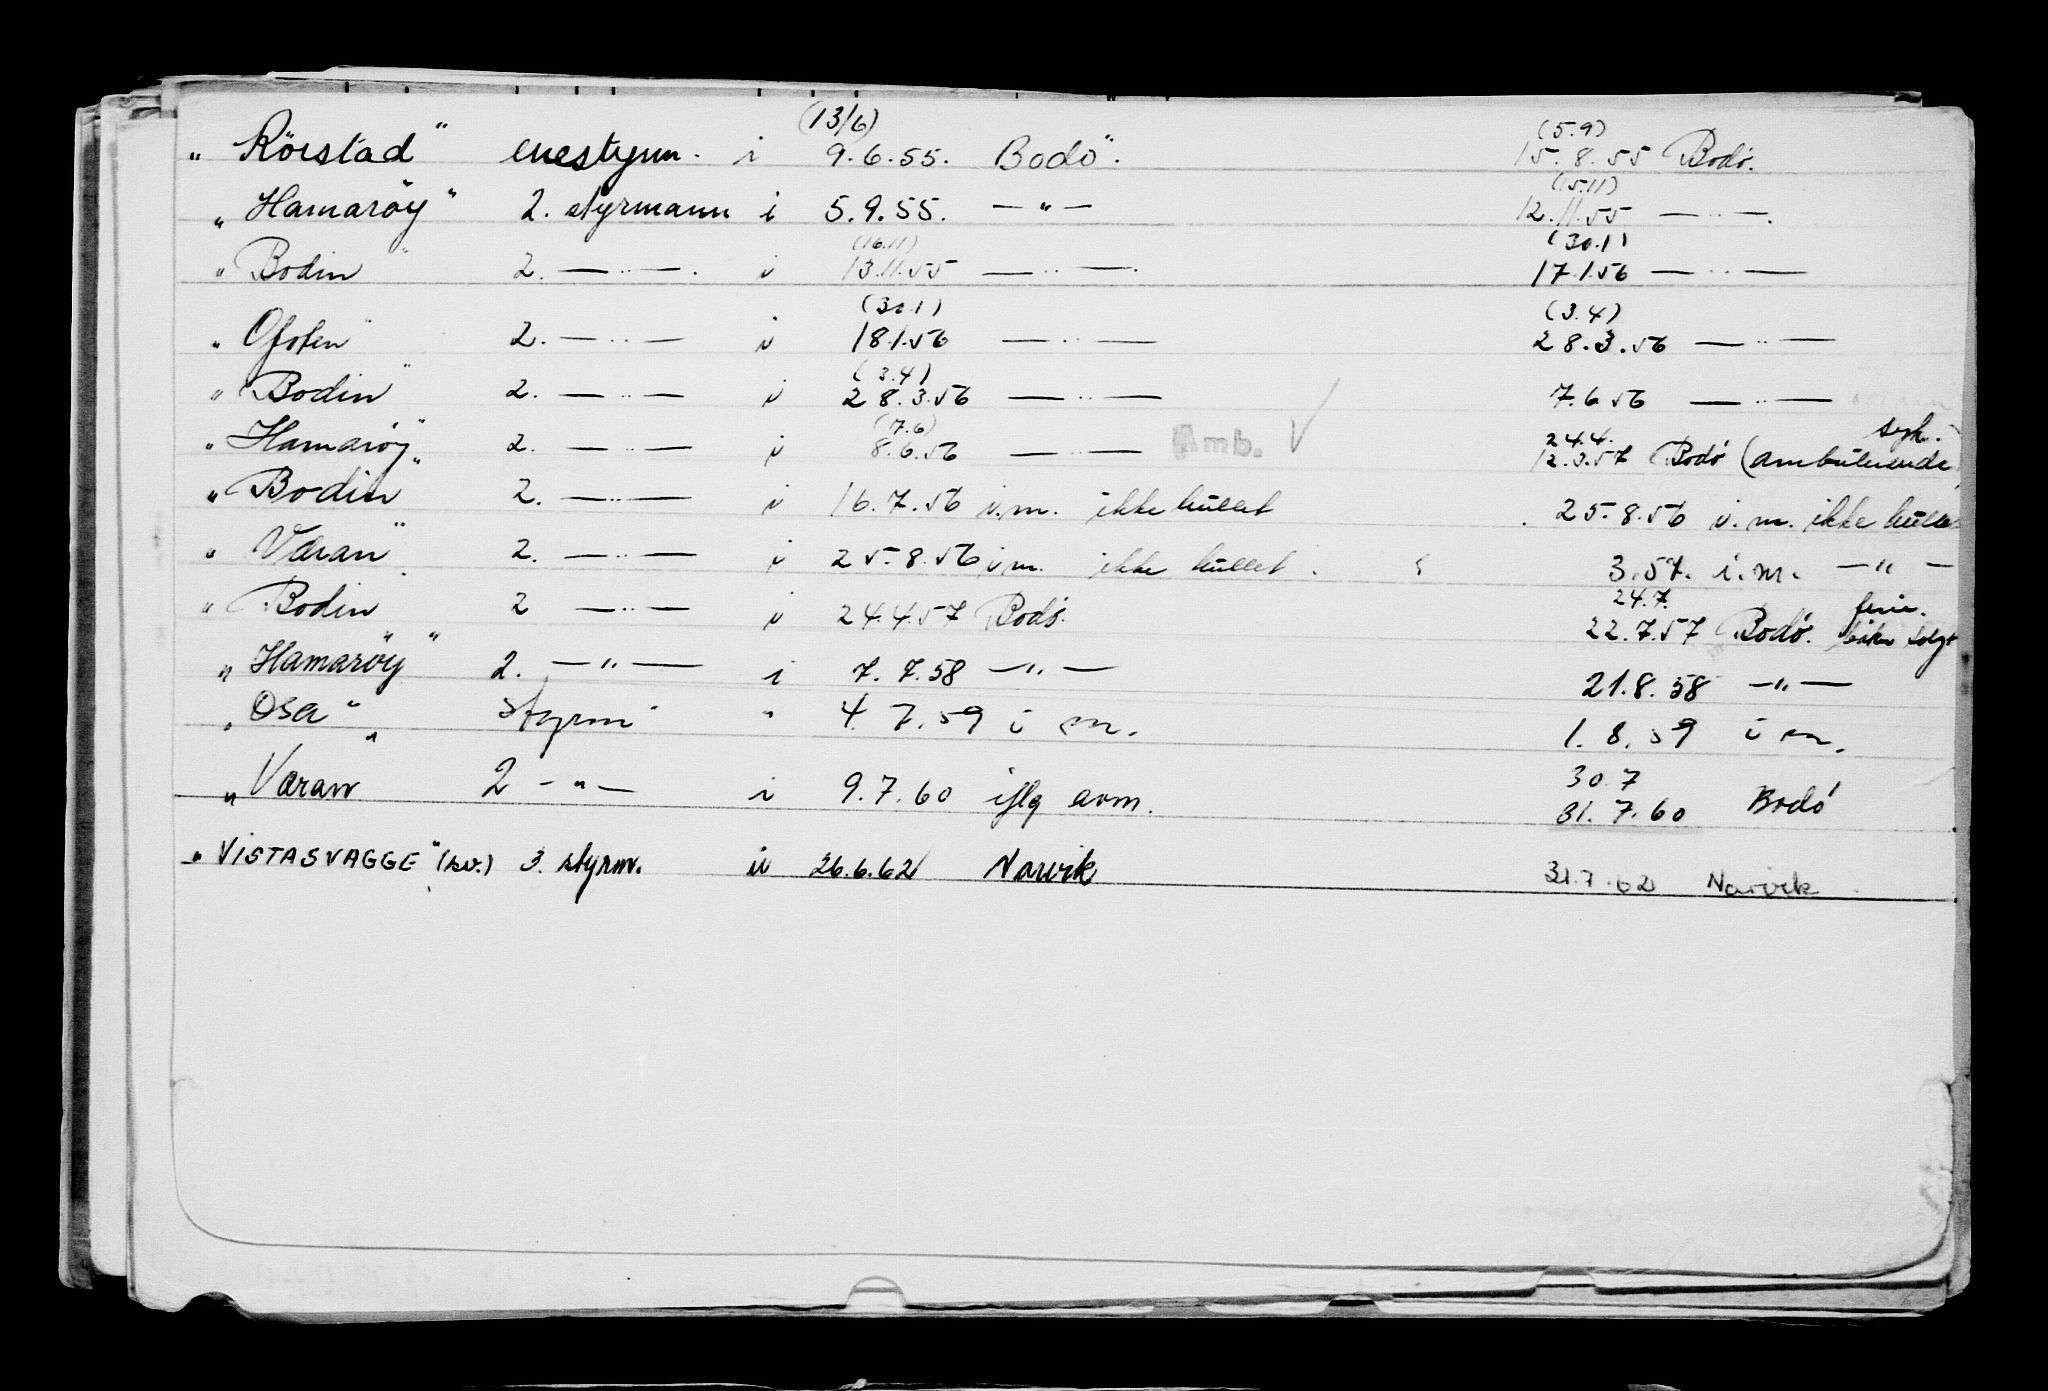 (13/6) (5.9)
"Rörstad" enestyrm. i 9.6.55. Bodö. 15.8.55 Bodö.
(15.11)
"Hamaröy" 2. styrmann i 5.9.55. — " — 12.11.55 — " —.
(16.11) (30.1)
"Bodin" 2. — " —. i 13.11.55 — " —. 17.1.56 — " —
(30.1) (3.4)
"Ofoten" 2. — " — i 18.1.56 — " — 28.3.56 — " —
(3.4)
"Bodin" 2. — " — i 28.3.56 — " — 7.6.56 — " —
(7.6) 24.4. syk.
"Hamaröy" 2. — " — i 8.6.56 — " — Amb. V 12.3.57 Bodö (ambulerende)
"Bodin" 2. — " — i 16.7.56 i.m. ikke hullet 25.8.56 i.m. ikke hullet
"Væran" 2. — " — i 25.8.56 i.m. ikke hullet. 3.57. i.m. — " —
24.7. ferie.
"Bodin" 2 — " — i 24.4.57 Bodö. 22.7.57 Bodö. solgt
"Hamaröy" 2. — " — i 7.7.58 — " — 21.8.58 — " —
"Osa" styrm " 4.7.59 i m. 1.8.59 i m.
30.7
"Væran" 2 — " — i 9.7.60 iflg avm. 31.7.60 Bodö
"VISTASVAGGE" (sv.) 3. styrm. i 26.6.62 Narvik 31.7.62 Narvik